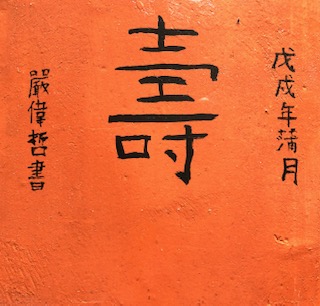 戊戌年蒲月
壽
嚴偉哲書